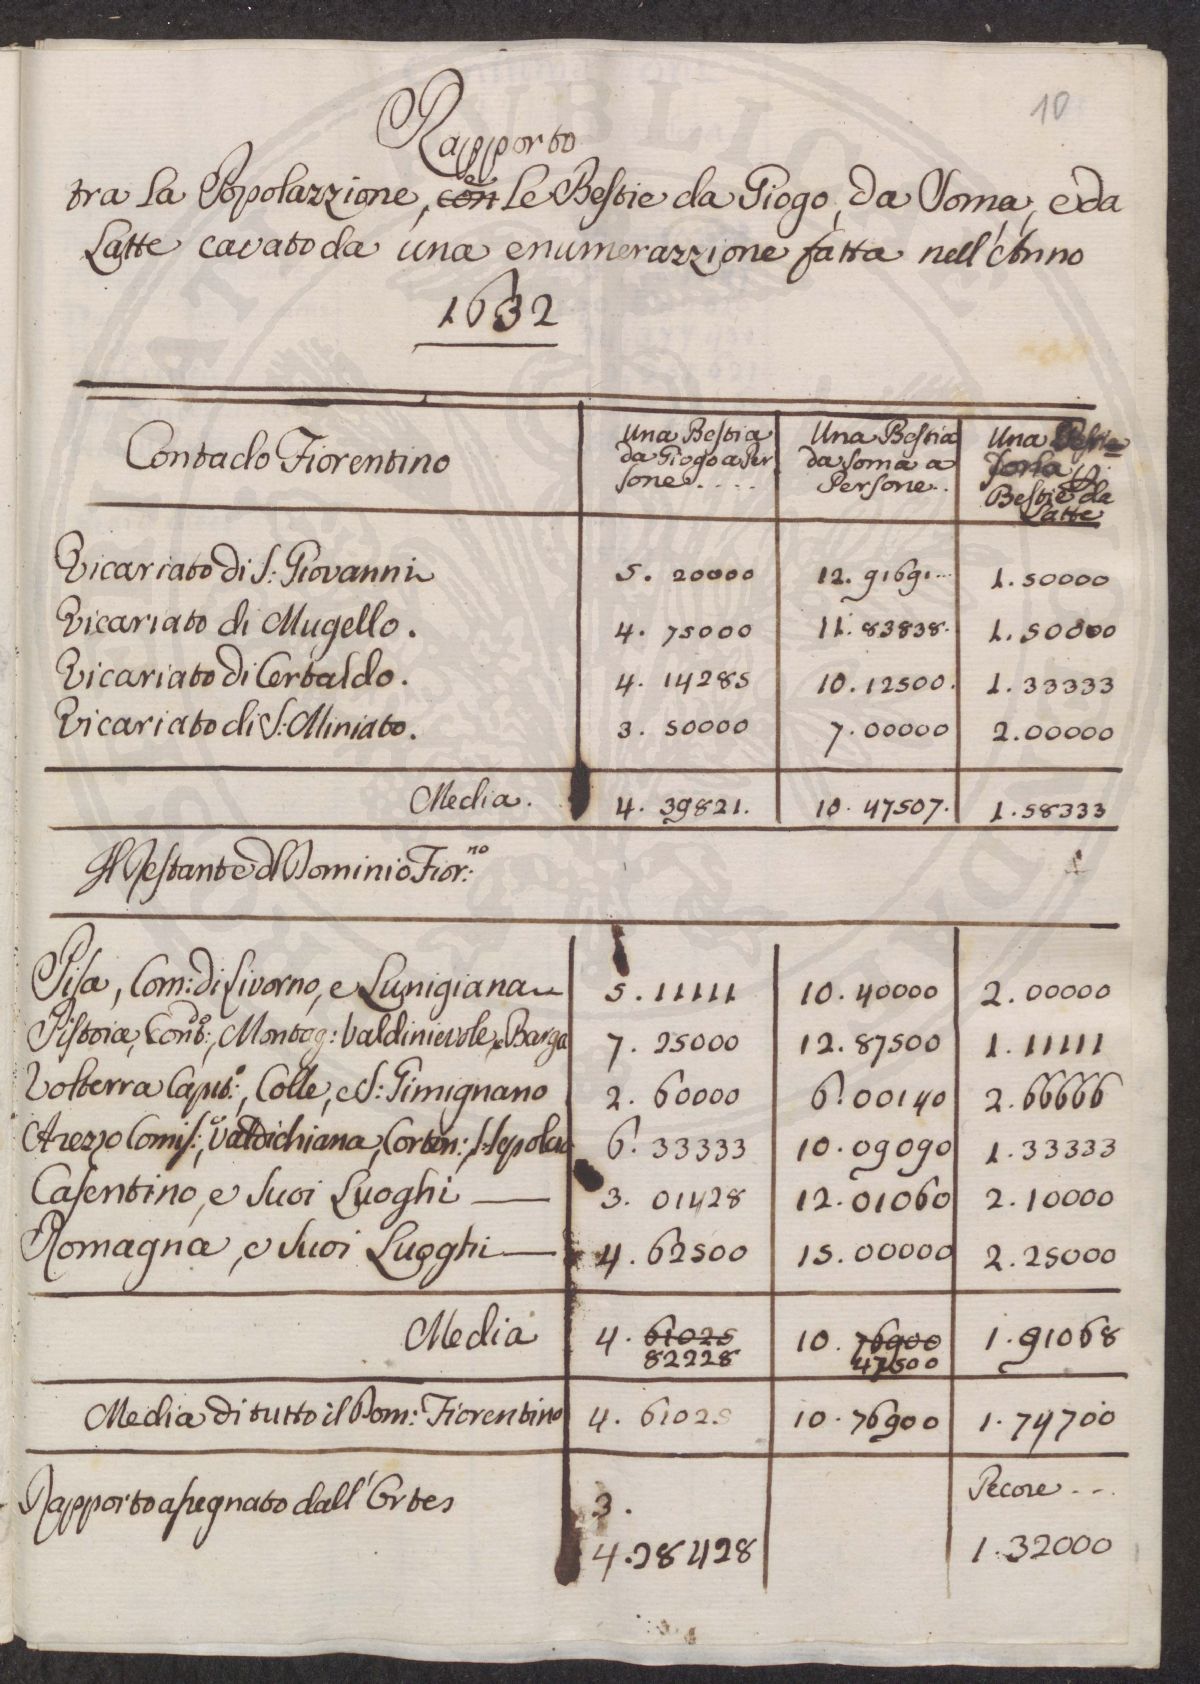 10
Rapporto
tra la Popolazzione, con e le Bestie da Giogo, da Soma, e da
Latte cavato da una enumerazzione fatta nell'Anno
1632
Contado Fiorentino
Una Bestia da Giogo a Persone....
Una Bestia da Soma a Persone..
Una Bestie da Latte
Vicariato di S: Giovanni 5. 20000 12. 91691... 1. 50000
Vicariato di Mugello. 4. 75000 11. 83838. 1. 50000
Vicariato di Certaldo. 4. 14285 10. 12500. 1. 33333
Vicariato di S: Miniato. 3. 50000 7. 00000 2. 00000
Media. 4. 39821. 10. 47507. 1. 58333
Il Restante del Dominio Fior:no
Pisa, Com: di Livorno, e Lunigiana 5. 11111 10. 40000 2. 00000
Pistoia, Cont:do, Montag: Valdinievole, e Barga 7. 25000 12. 87500 1. 11111
Volterra Capit:o, Colle, e S: Gimignano 2. 60000 6. 00140 2. 66666
Arezzo Comis:, Valdichiana, Corton:, S: Sepolcro 6. 33333 10. 09090 1. 33333
Casentino, e Suoi Luoghi — 3. 01428 12. 01060 2. 10000
Romagna, e Suoi Luoghi — 4. 62500 15. 00000 2. 25000
Media 4. 61025 10. 76900 1. 91068
82228 47500
Media di tutto il Dom: Fiorentino 4. 61025 10. 76900 1. 74700
Rapporto assegnato dall'Ortes 3. Pecore...
4. 28428 1. 32000